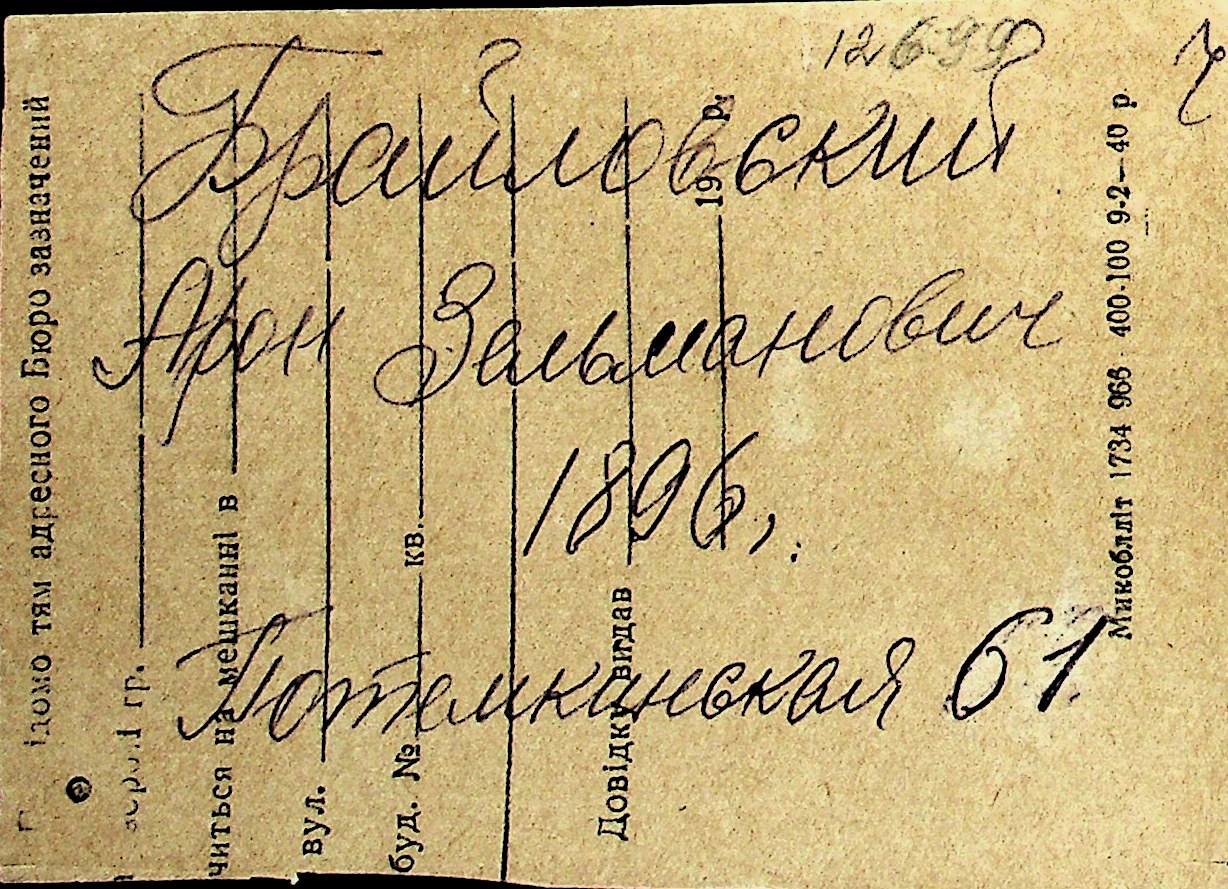 12699
Брайловский
Арон Зельманович
1896,.
Потемкинская 61
тям адресного Бюро зазначений
гр.
читься на мешканні в
вул.
буд. № кв.
Довідку видав
19 р.
Микобліт 1734 966 400·100 9-2—40 р